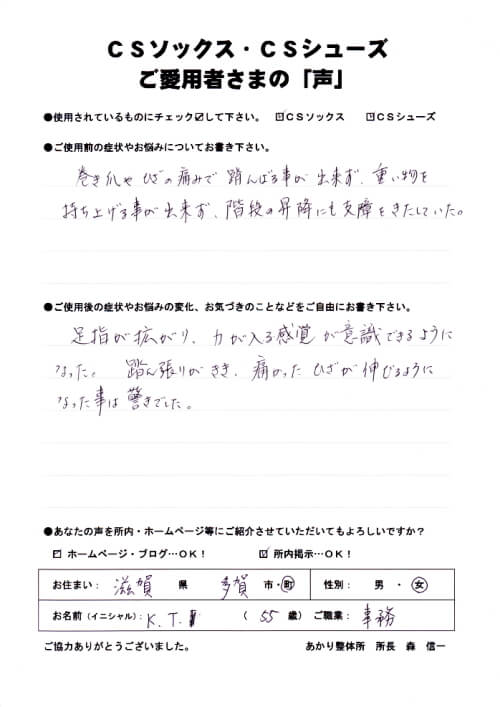 CSソックス・CSシューズ
ご愛用者さまの「声」
●使用されているものにチェック☑して下さい。 ☑CSソックス ☑CSシューズ
●ご使用前の症状やお悩みについてお書き下さい。
巻き爪やひざの痛みで踏んばる事が出来ず、重い物を
持ち上げる事が出来ず、階段の昇降にも支障をきたしていた。
●ご使用後の症状やお悩みの変化、お気づきのことなどをご自由にお書き下さい。
足指が拡がり、力が入る感覚が意識できるように
なった。踏ん張りがきき、痛かったひざが伸びるように
なった事は驚きでした。
●あなたの声を所内・ホームページ等にご紹介させていただいてもよろしいですか？
☑ ホームページ・ブログ…OK！ ☑ 所内掲示…OK！
お住まい： 滋賀 県 多賀 市・町 性別： 男 ・ 女
お名前（イニシャル）： K.T （ 55 歳） ご職業： 事務
ご協力ありがとうございました。 あかり整体所 所長 森 信一